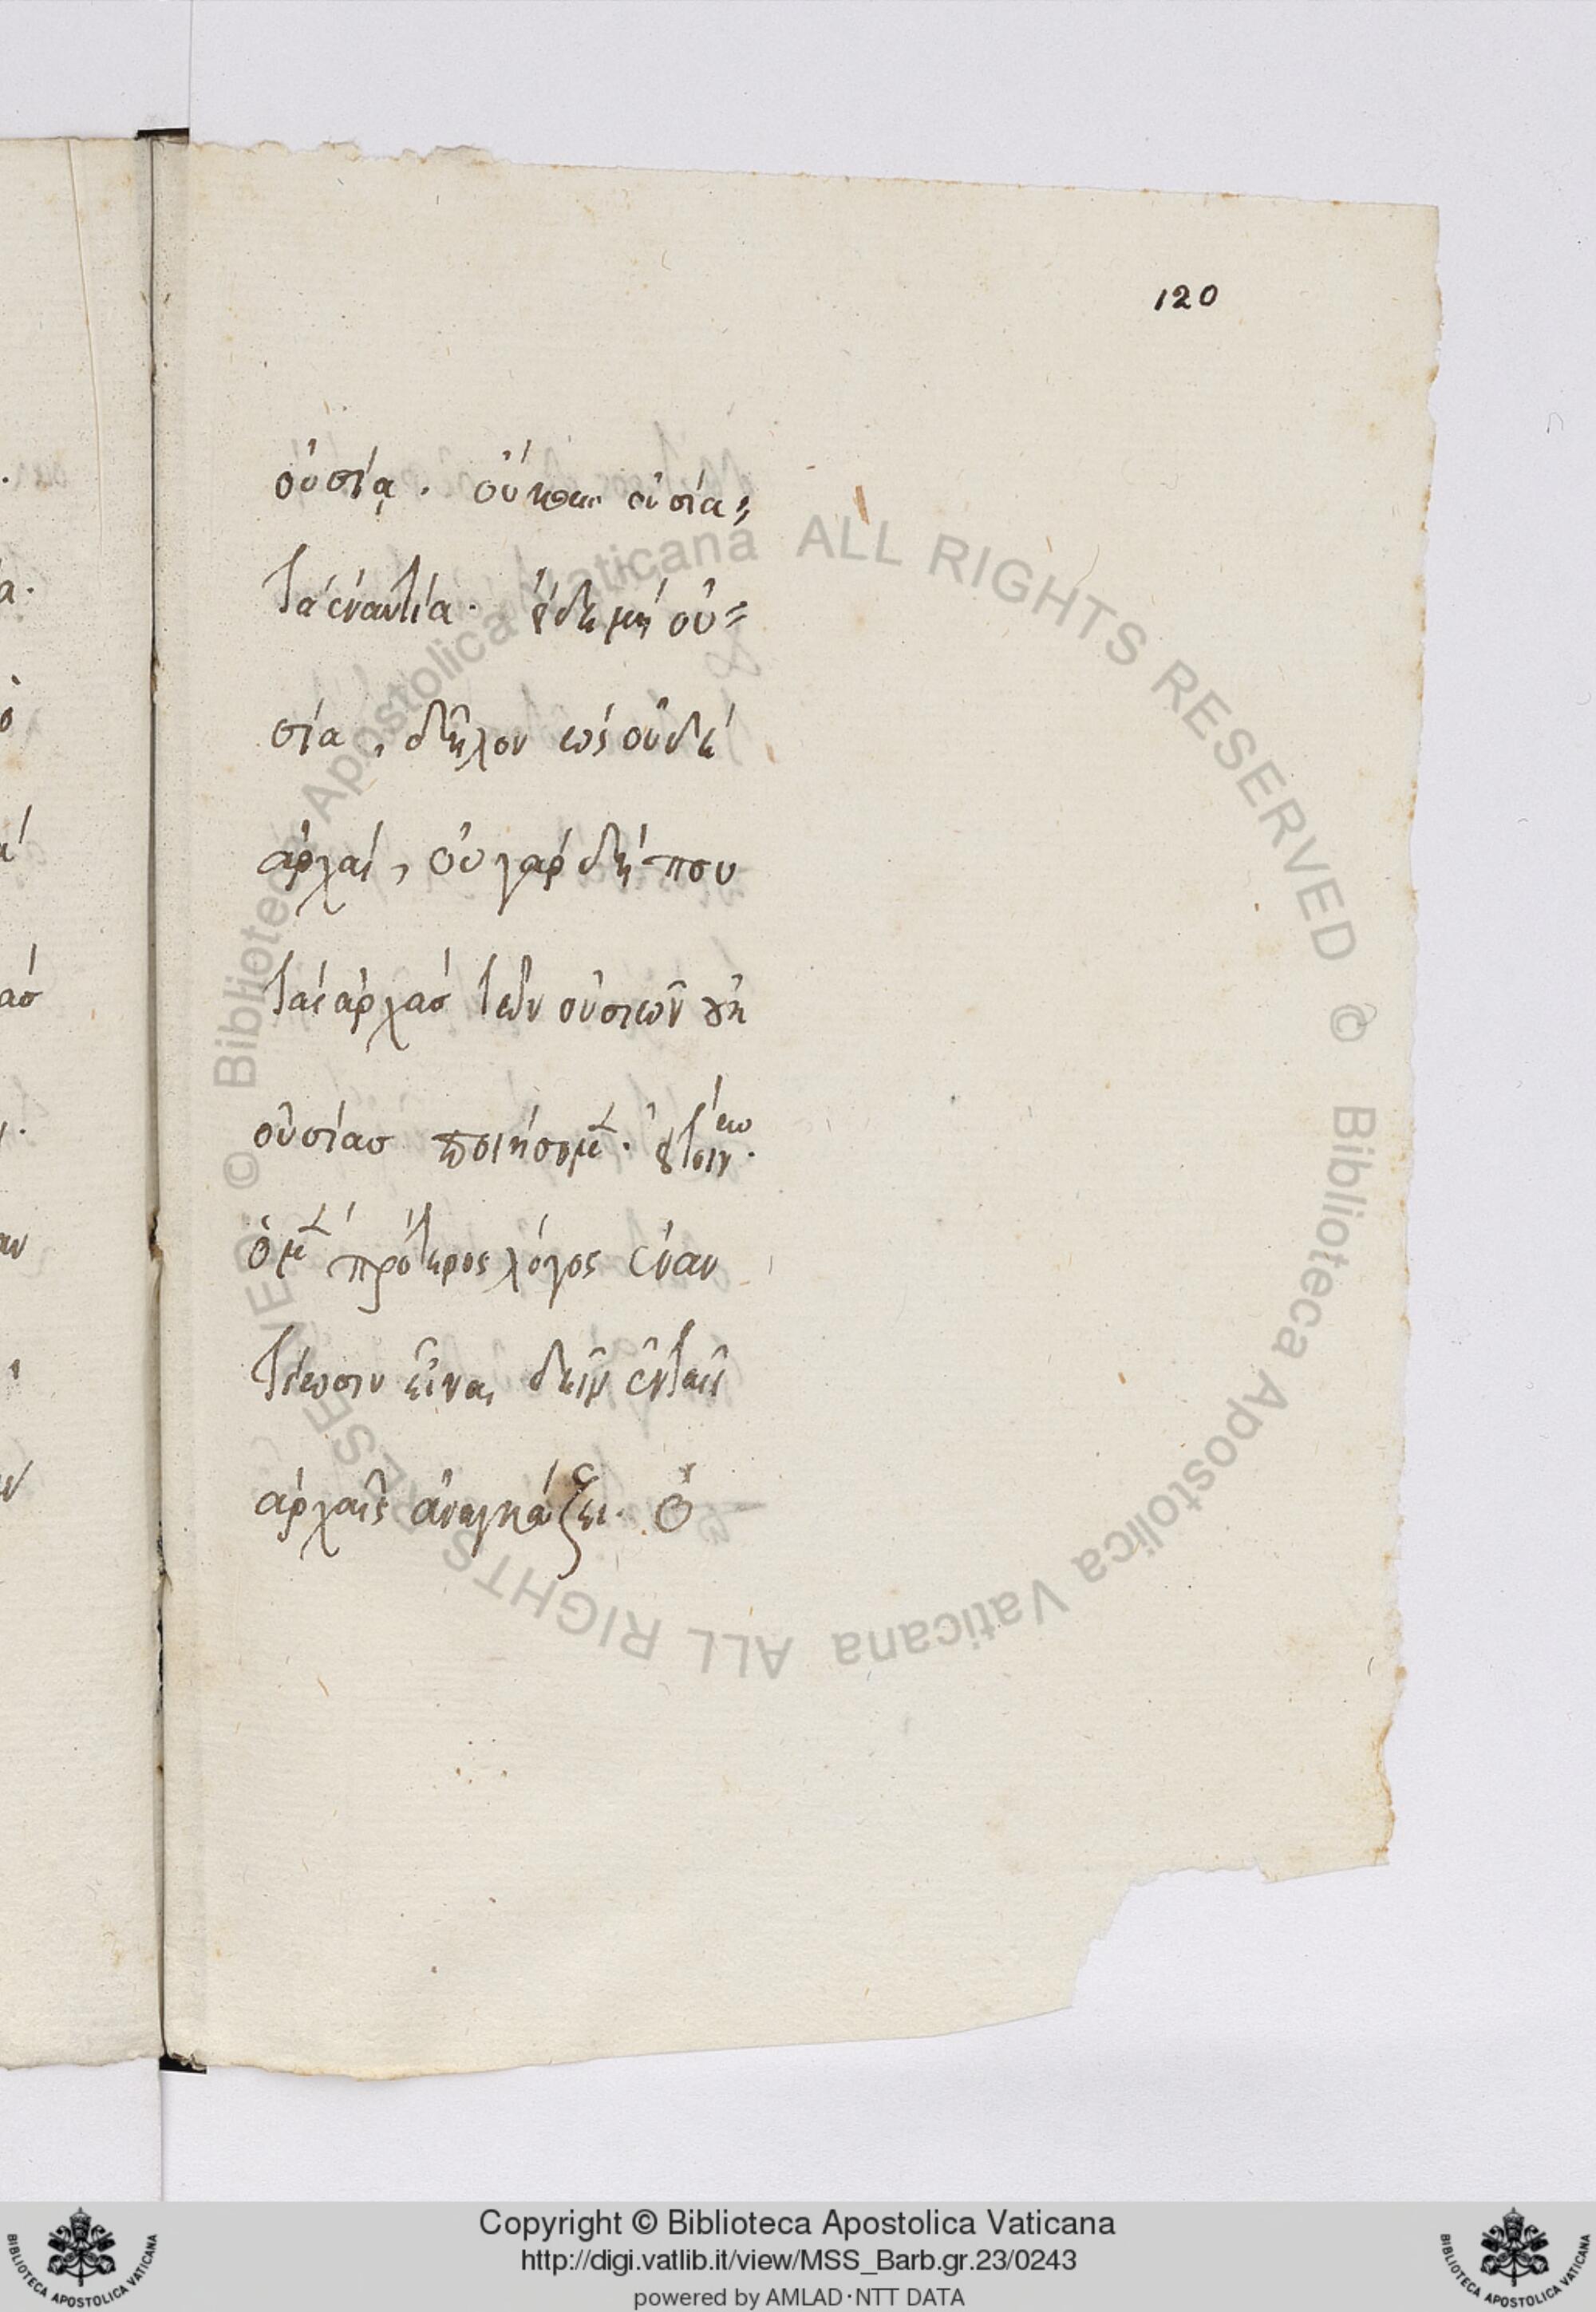 120
οὐσίᾳ. οὐκ ἄρα οὐσία
τὰ ἐναντία. εἰ δὲ μὴ οὐ=
σία, δῆλον ὡς οὐδὲ
ἀρχαί, οὐ γὰρ δή που
τὰς ἀρχὰσ τῶν οὐσιῶν οὐκ
οὐσίασ ποιήσομεν. οὕτωσιν.
ὁ μὲν πρότερος λόγος ἐναν
τίωσιν εἶναι δεῖν ἐν ταῖς
ἀρχαῖς ἀναγκάζει. ὁ
Copyright © Biblioteca Apostolica Vaticana
http://digi.vatlib.it/view/MSS_Barb.gr.23/0243
powered by AMLAD·NTT DATA
© Biblioteca Apostolica Vaticana ALL RIGHTS RESERVED © Biblioteca Apostolica Vaticana ALL RIGHTS RESERVED
BIBLIOTECA APOSTOLICA VATICANA
BIBLIOTECA APOSTOLICA VATICANA